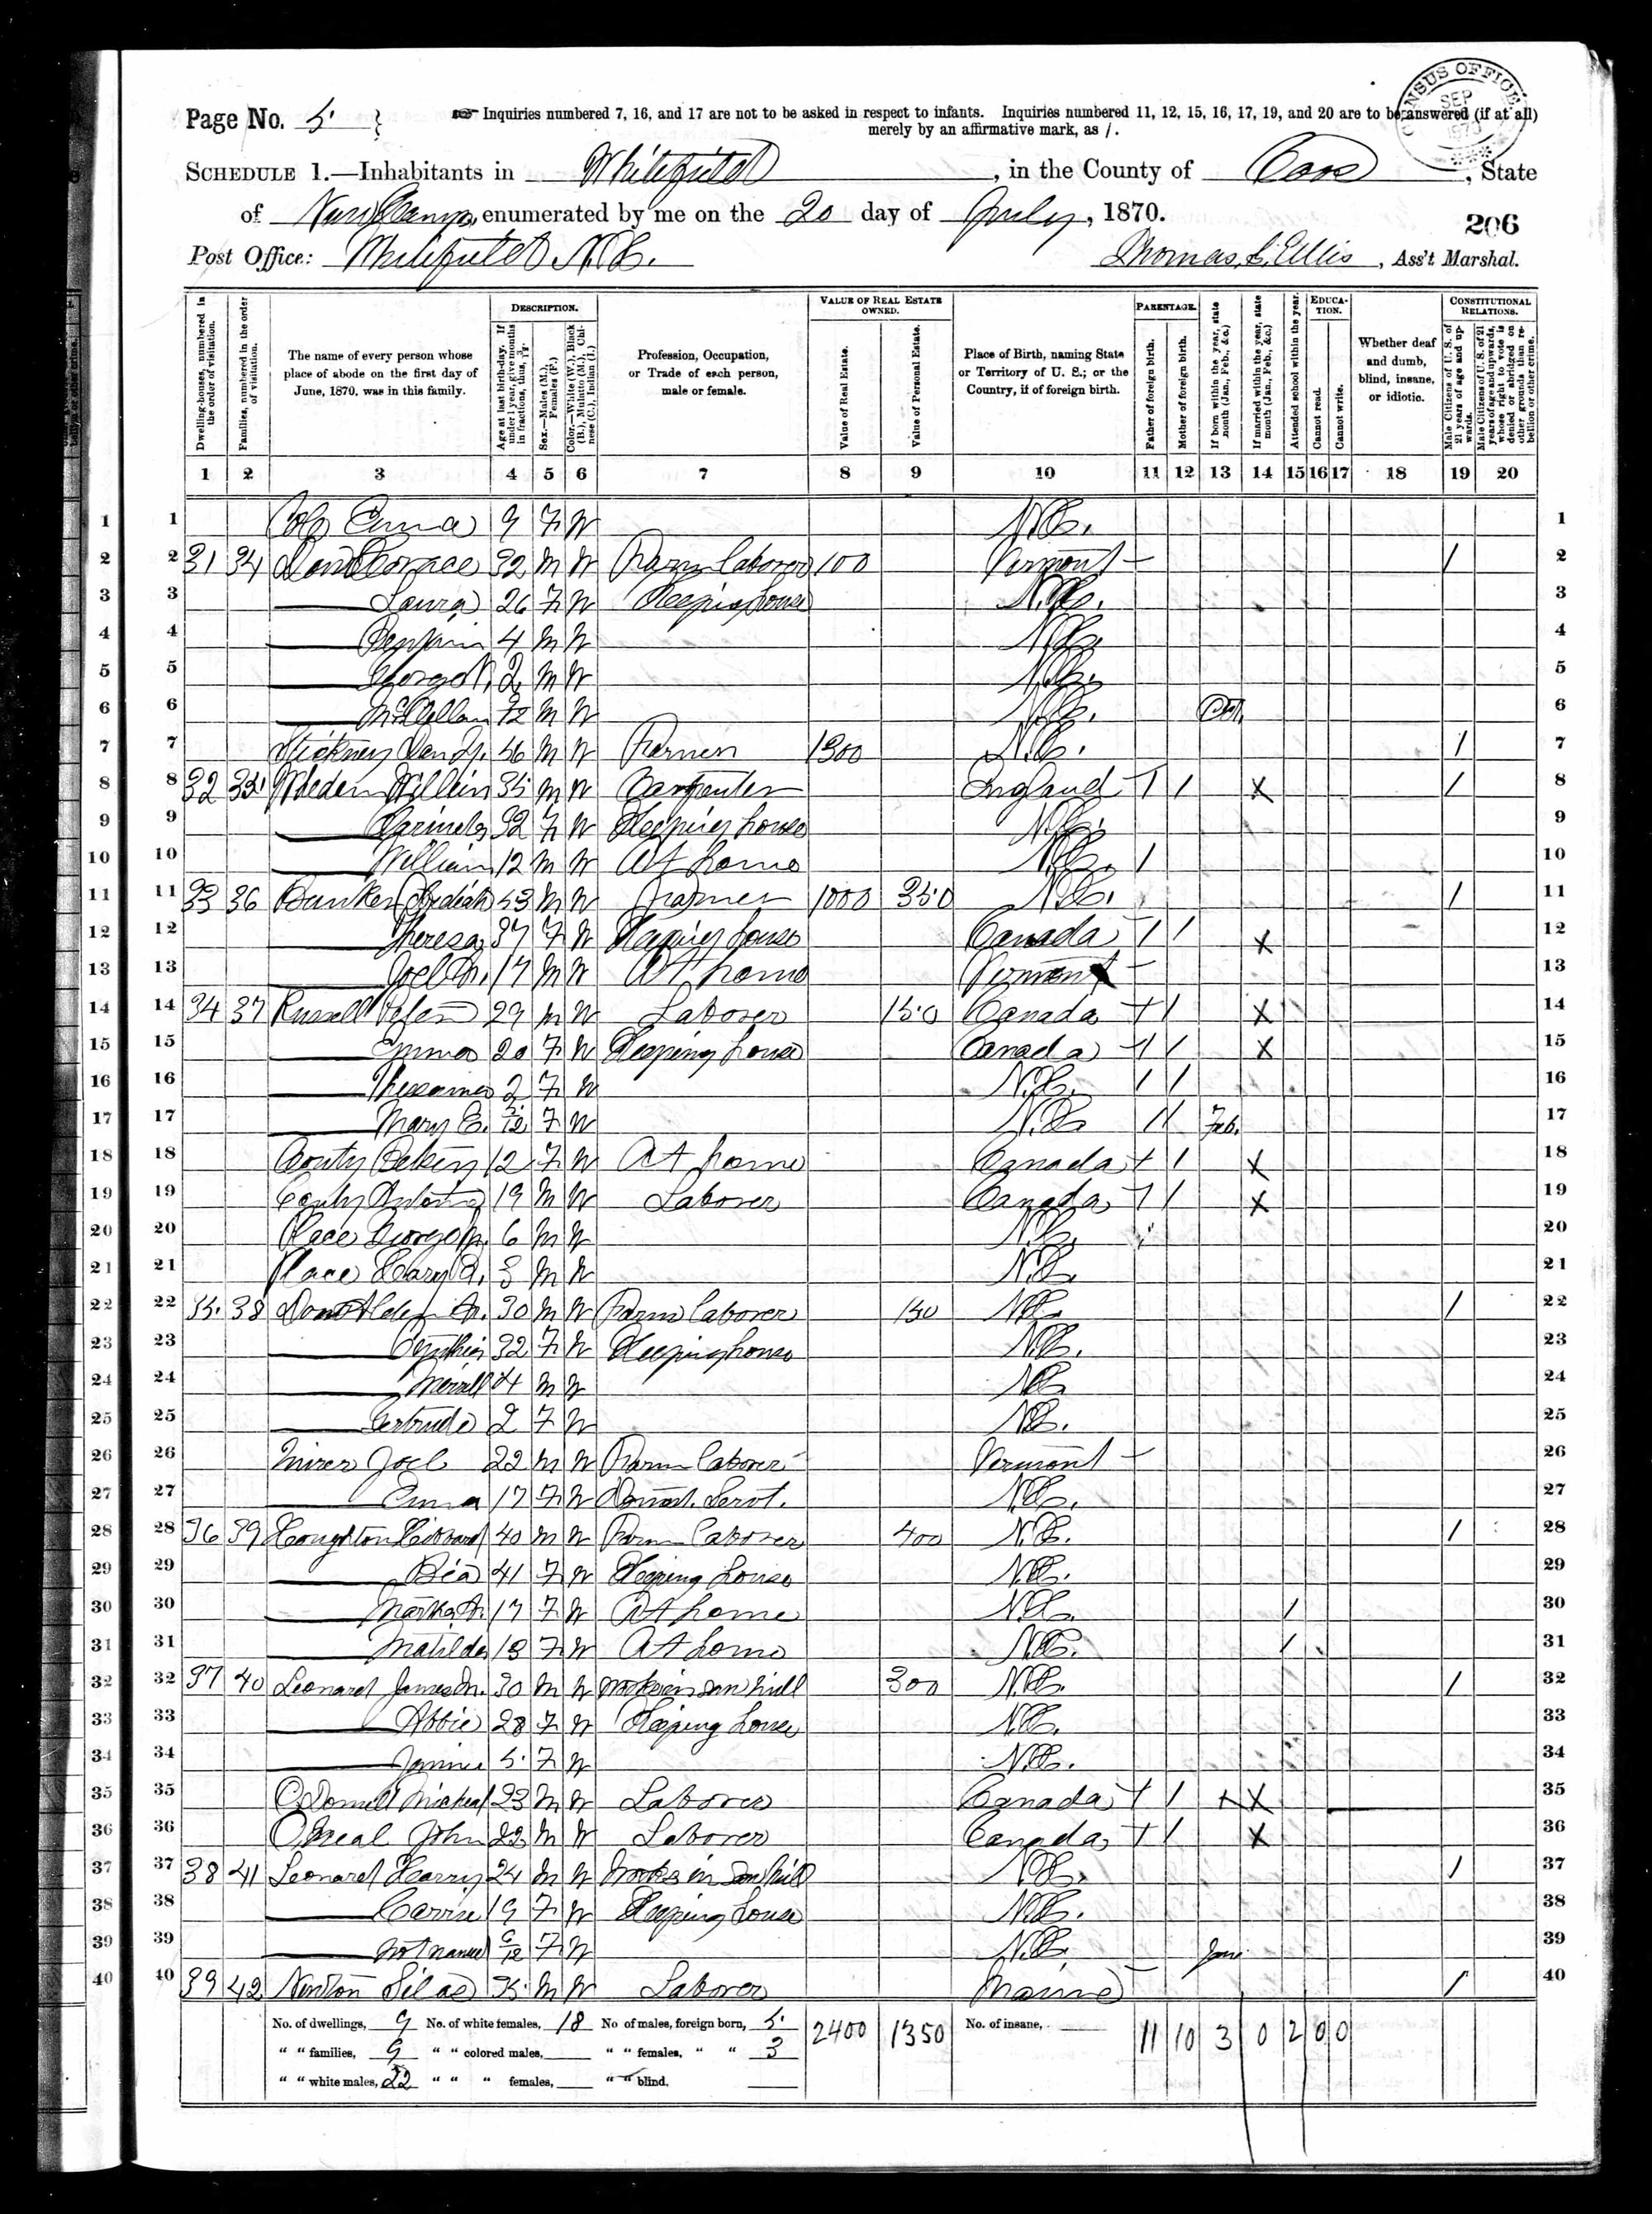 Page No. 5
☞ Inquiries numbered 7, 16, and 17 are not to be asked in respect to infants. Inquiries numbered 11, 12, 15, 16, 17, 19, and 20 are to be answered (if at all)
merely by an affirmative mark, as /.
CENSUS OFFICE SEP 1870
SCHEDULE 1.—Inhabitants in Whitefield, in the County of Coos, State
of New Hamp, enumerated by me on the 20 day of July, 1870.
206
Post Office: Whitefield N.H. Thomas C. Ellis, Ass't Marshal.
Dwelling-houses, numbered in the order of visitation.
Families, numbered in the order of visitation.
The name of every person whose place of abode on the first day of June, 1870, was in this family.
DESCRIPTION.
Age at last birth-day. If under 1 year, give months in fractions, thus, 3/12.
Sex.—Males (M.), Females (F.)
Color.—White (W.), Black (B.), Mulatto (M.), Chinese (C.), Indian (I.)
Profession, Occupation, or Trade of each person, male or female.
VALUE OF REAL ESTATE OWNED.
Value of Real Estate.
Value of Personal Estate.
Place of Birth, naming State or Territory of U. S.; or the Country, if of foreign birth.
PARENTAGE.
Father of foreign birth.
Mother of foreign birth.
If born within the year, state month (Jan., Feb., &c.)
If married within the year, state month (Jan., Feb., &c.)
Attended school within the year.
EDUCATION.
Cannot read.
Cannot write.
Whether deaf and dumb, blind, insane, or idiotic.
CONSTITUTIONAL RELATIONS.
Male Citizens of U. S. of 21 years of age and upwards.
Male Citizens of U. S. of 21 years of age and upwards, whose right to vote is denied or abridged on other grounds than rebellion or other crime.
1 2 3 4 5 6 7 8 9 10 11 12 13 14 15 16 17 18 19 20
1 9 F W N.H. 1
2 31 34 Horace 32 M W Farm laborer 100 Vermont / 2
3 Laura 26 F W Keeping house N.H. 3
4 Benjamin 4 M W N.H. 4
5 2 M W N.H. 5
6 McClellan M W N.H. Oct. 6
7 Stickney 46 M W Farmer 1300 N.H. / 7
8 32 35 35 M W Carpenter England / / X / 8
9 32 F W Keeping house N.H. 9
10 William 12 M W At home N.H. / 10
11 33 36 Bunker 53 M W Farmer 1000 350 N.H. / 11
12 Theresa 37 F W Keeping house Canada / / X 12
13 Joel 17 M W At home Vermont 13
14 34 37 Russell Peter 29 M W Laborer 150 Canada / / X 14
15 Emma 20 F W Keeping house Canada / / X 15
16 2 F W N.H. / / 16
17 Mary E. F W N.H. / / Feb. 17
18 12 F W At home Canada / / X 18
19 19 M W Laborer Canada / / X 19
20 Place George 6 M W N.H. 20
21 Place M W N.H. 21
22 35 38 Alden 30 M W Farm laborer 150 N.H. / 22
23 Cynthia 32 F W Keeping house N.H. 23
24 Merrill 4 M W N.H. 24
25 Gertrude 2 F W N.H. 25
26 Miner Joel 22 M W Farm laborer Vermont 26
27 Emma 17 F W Domst. Servt. N.H. 27
28 36 39 Houghton Hibbard 40 M W Farm laborer 400 N.H. / 28
29 41 F W Keeping house N.H. 29
30 Martha A. 17 F W At home N.H. / 30
31 Matilda 13 F W At home N.H. / 31
32 37 40 Leonard James M. 30 M W Works in Saw Mill 300 N.H. / 32
33 Abbie 28 F W Keeping house N.H. 33
34 Jennie 5 F W N.H. 34
35 O'Donnell Micheal 23 M W Laborer Canada / / X X 35
36 O'Neal John 22 M W Laborer Canada / / X 36
37 38 41 Leonard Harry 24 M W Works in Saw Mill N.H. / 37
38 Carrie 19 F W Keeping house N.H. 38
39 Not named F W N.H. 39
40 39 42 Newton Silas M W Laborer Maine / 40
No. of dwellings, 9 No. of white females, 18 No of males, foreign born, 5 2400 1350 No. of insane, 11 10 3 0 2 0 0
" " families, 9 " " colored males, " " females, " " 3
" " white males, 22 " " " females, " " blind,